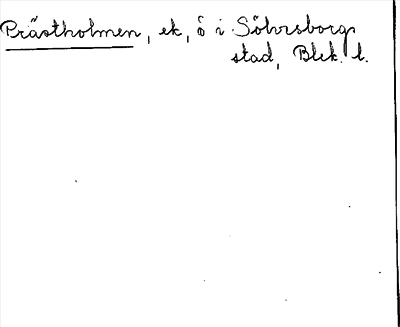 Prästholmen, ek, ö i Sölvesborgs
stad, Blek. l.